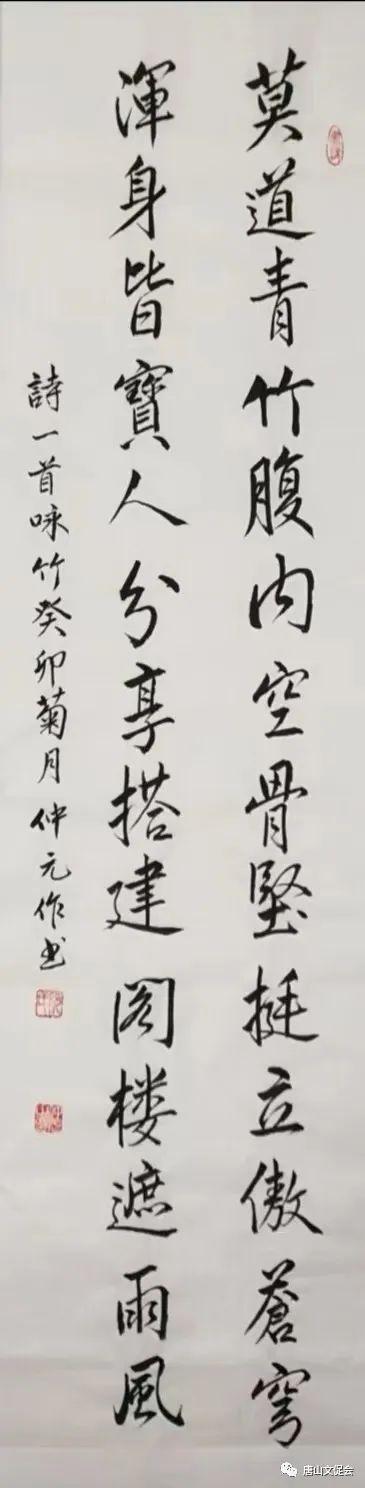 莫道青竹腹内空骨堅挺立傲蒼穹
渾身皆寶人分享搭建阁楼遮雨風
詩一首咏竹癸卯菊月仲元作书
唐山文促会